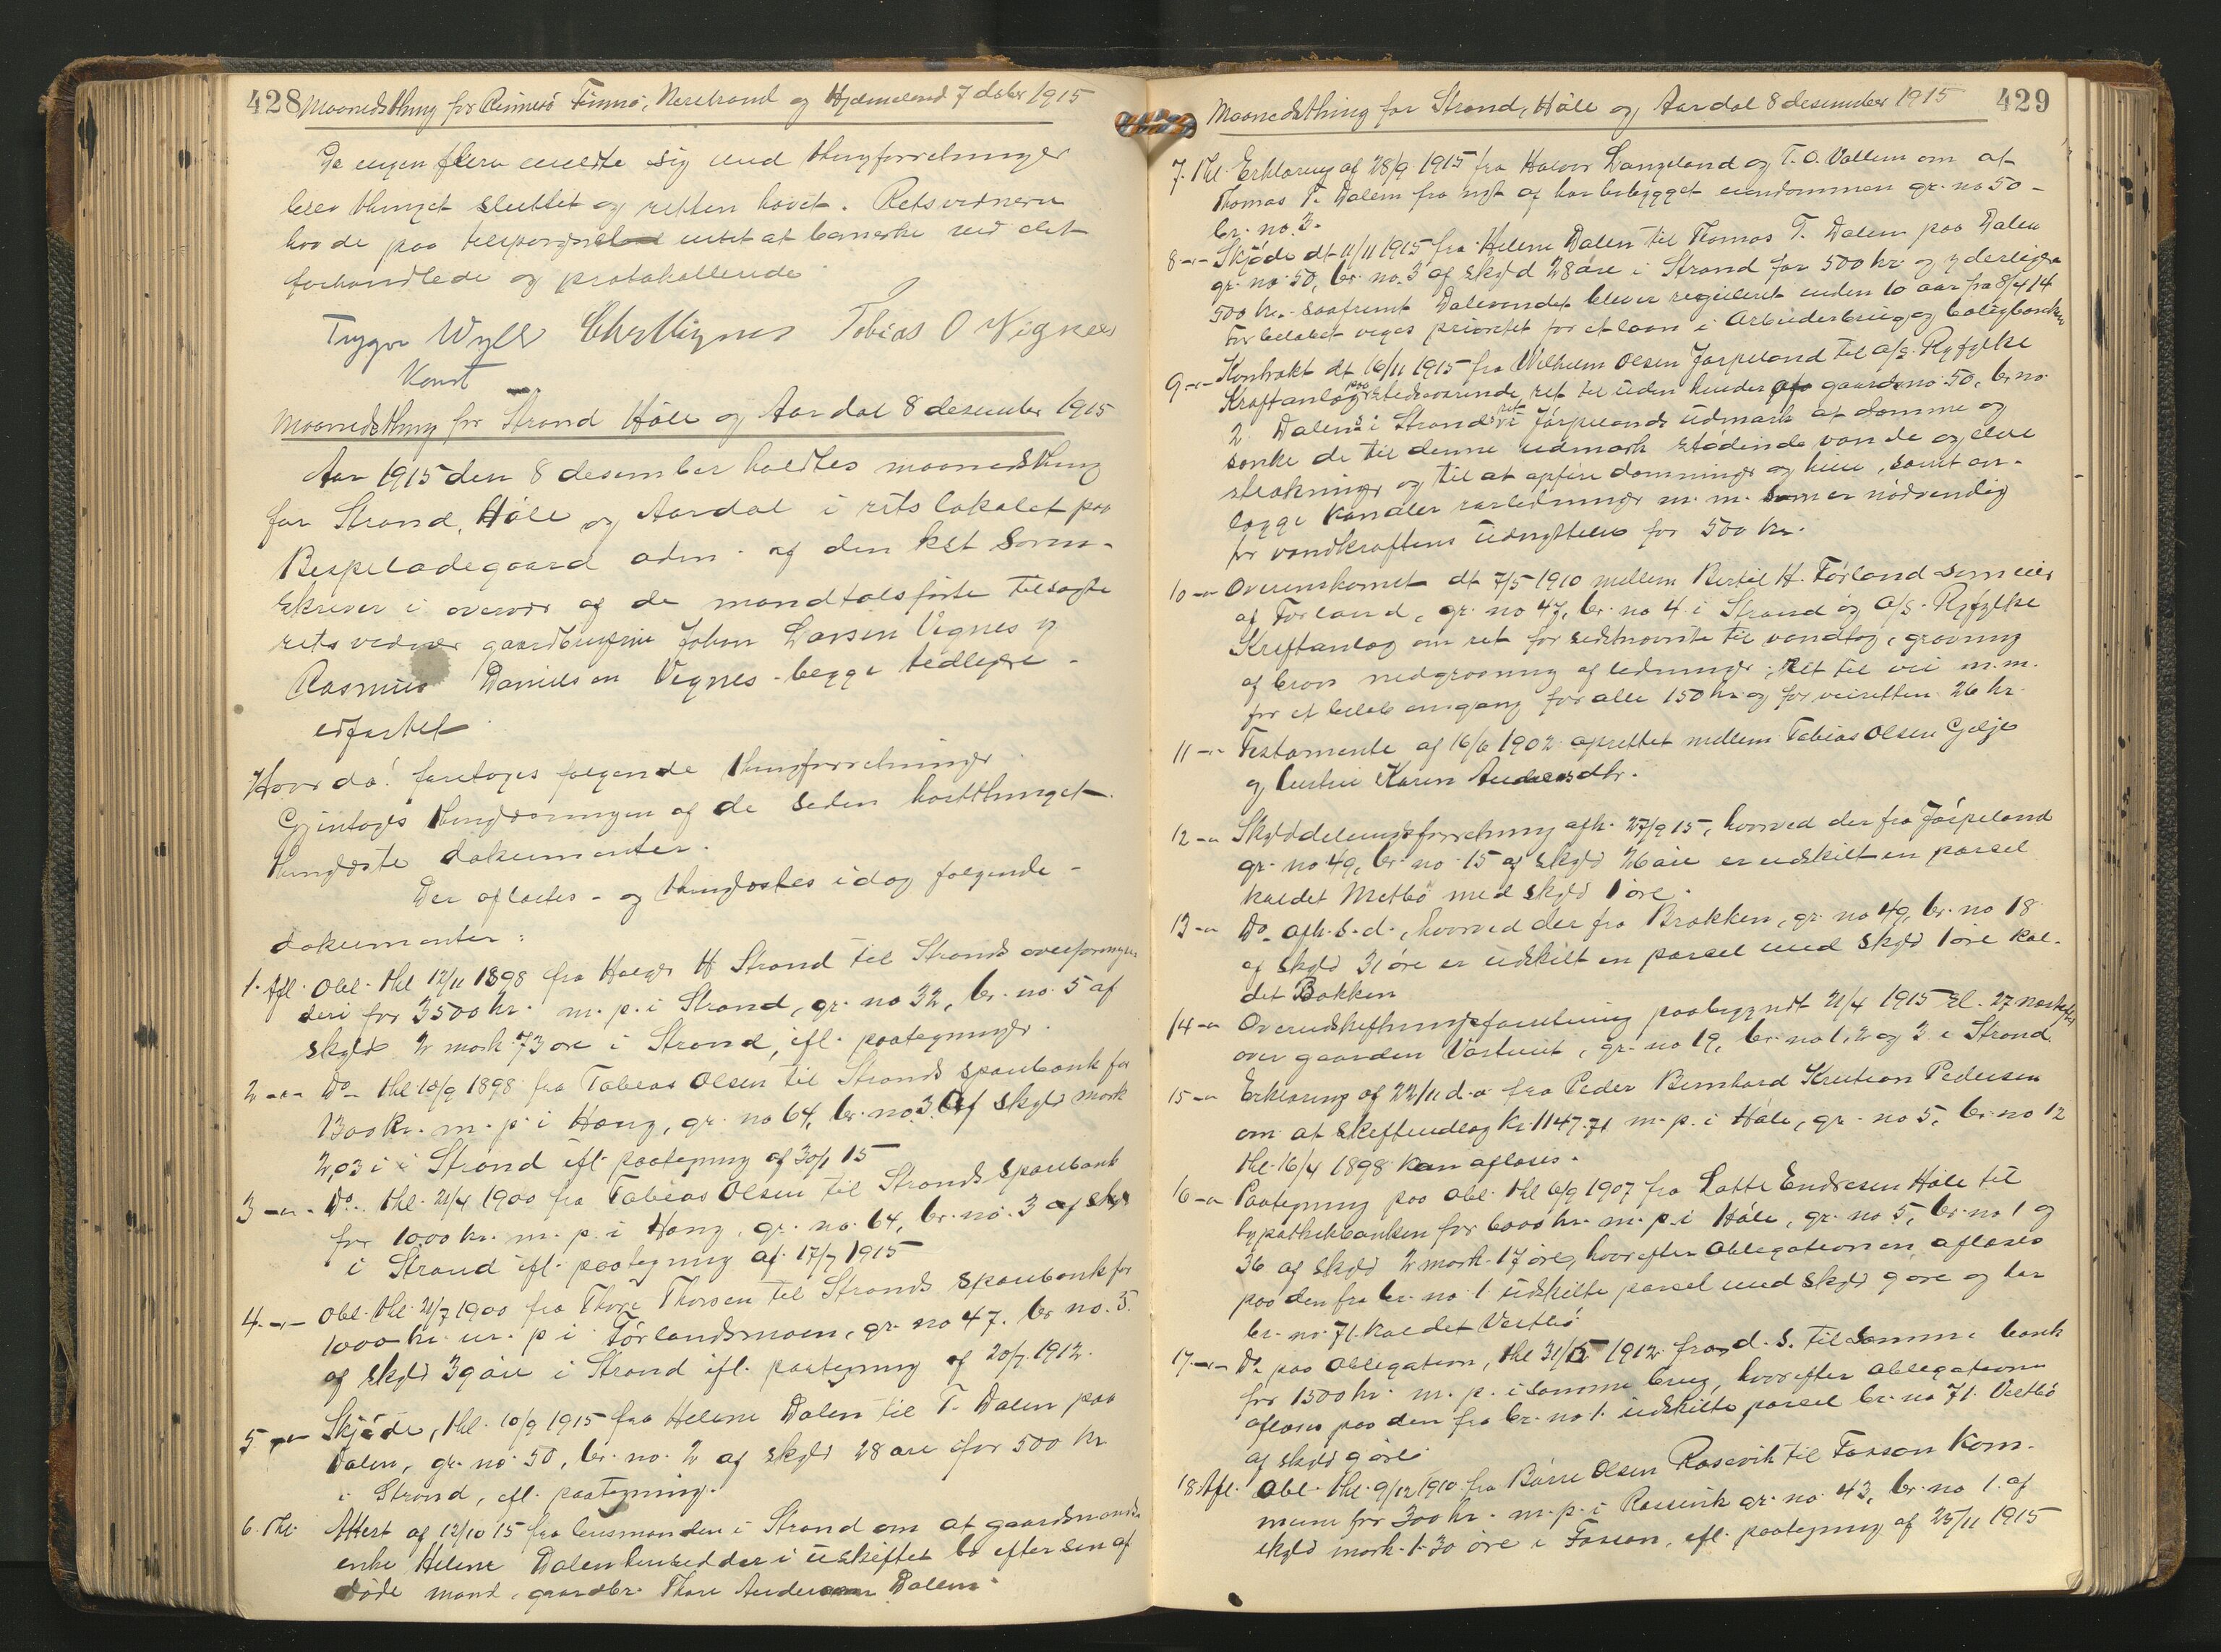 428 Maanedsthing for Rennesö Finnö, Nerstrand og Hjelmeland 7 dcbr 1915
Da ingen flere meldte sig med thingforretninger
blev thinget sluttet og retten hævet. Retsvidnerne
havde paa tilspørgsel intet at bemerke ved det
forhandlede og protokollerede
Trygve Wyller Tobias O Vignes
Konst
Maanedsthing for Strand Höle og Aardal 8 desember 1915
Aar 1915 den 8 desember holdtes maanedsthing
for Strand, Höle og Aardal i retslokalet paa
Bispeladegaard adm. af den kst soren-
skriver i overvær af de mandtalsførte tilsagte
retsvidner gaardbrugerne Johan Larsen Vignes og
Rasmus Danielsen Vignes - begge tidligere
edfæstet
Hvor da! foretoges følgende thingforretninger
Gjentoges thinglæsningen af de siden høstthinget
thinglæste dokumenter.
Der aflæstes - og thinglæstes idag følgende -
dokumenter:
1. Afl. Obl. thl 12/11 1898 fra Holger H Strand til Strands overformyn-
deri for 3500 kr. m. p. i Strand, gr. no 32, br. no. 5 af
skyld 2 mark 73 øre i Strand, ifl. paategninger.
2 -"- Do - thl 10/9 1898 fra Tobias Olsen til Strands sparebank for
1300 kr. m. p. i Haug, gr. no 64, br. no. 3 af skyld mark
2,03 i Strand ifl. paategning af 30/1 15
3 -"- Do. thl. 21/4 1900 fra Tobias Olsen til Strands sparebank
for 1000 kr. m. p. i Haug, gr. no. 64, br. no. 3 af skyld
i Strand ifl. paategning af 17/7 1915
4. -"- Obl. thl. 21/7 1900 fra Thore Thorsen til Strands sparebank for
1000 kr. m. p i Förlandsmoen, gr. no 47. br no. 5.
af skyld 39 øre i Strand ifl. paategning af 20/7 1912.
5 -"- Skjöde, thl. 10/9 1915 fra Helene Dalen til T. Dalen paa
Dalen, gr. no 50, br. no. 2 af skyld 28 øre for 500 kr
i Strand, ifl. paategning.
6. Thl. Attest af 12/10 15 fra lensmanden i Strand om at gaardmands-
enke Helene Dalen hensidder i uskiftet bo efter sin af-
døde mand, gaardbr. Thore Andersen Dalen.
Maanedsthing for Strand, Höle og Aardal 8 desember 1915 429
7. Thl. Erklæring af 28/9 1915 fra Halvor Langeland og T. O. Vallem om at
Thomas T. Dalen fra nyt af har bebygget eiendommen gr. no 50 -
br. no. 3.
8 -"- Skjöde dt 11/11 1915 fra Helene Dalen til Thomas T. Dalen paa Dalen
gr. no 50, br. no. 3 af skyld 28 øre i Strand for 500 kr. og yderligere
500 kr. saafremt Dalevandet blir regulert inden 10 aar fra 8/4 14
For beløbet viges prioritet for et laan i Arbeiderbrug og boligbanken
9 -"- Kontrakt dt 16/11 1915 fra Wilhelm Olsen Jørpeland til A/S. Ryfylke
Kraftanlæg paa stedsvarende ret til uden hinder af gaardsno 50, br. no
2 Dalens i Strand ret i Jørpelands udmark at dæmme og
sænke de til denne udmark stødende vande og elve
strækninger og til at opføre dæmninger og huse, samt an-
lægge kanaler rørledninger m. m. som er nödvendig
for vandkraftens udnyttelse for 500 kr.
10 -"- Overenskomst dt 7/5 1910 mellem Bertil H. Förland som eier
af Förland, gr. no 47, br. no 4 i Strand og A/S. Ryfylke
Kraftanlæg om ret for sidstnævnte til vandtag, gravning
af brøn nedgravning af ledninger, ret til vei m. m.
for et beløb engang for alle 150 kr og for veiretten 26 kr.
11 -"- Testamente af 16/6 1902 oprettet mellem Tobias Olsen Gilje
og hustru Karen Andersdtr.
12 -" Skylddelingsforretning afh. 27/9 15, hvorved der fra Jörpeland
gr. no 49, br. no 15 af skyld 26 øre er udskilt en parcel
kaldet Mætbö med skyld 1 øre.
13 -" Do. afh. s. d., hvorved der fra Brækken, gr. no 49, br. no 18
af skyld 31 øre er udskilt en parcel med skyld 1 øre kal-
det Bakken
14 -" Overudskiftningsforretning paabegyndt 21/4 1915
over gaarden Vostveit, gr. no 19, br. no 1, 2 og 3 i Strand.
15 -" Erklæring af 22/11 d. a fra Peder Bernhard Kristian Pedersen
om at skifteudlæg kr 1147.71 m. p. i Höle, gr. no 5, br. no 12
thl. 16/4 1898 kan aflæses.
16 -" Paategning paa obl. thl 6/9 1907 fra Lotte Endresen Höle til
hypothekbanken for 6000 kr. m. p. i Höle, gr. no 5, br. no 1 og
36 af skyld 2 mark 17 øre, hvorefter obligationen aflæses
paa den fra br. no 1 udskilte parcel med skyld 9 øre og har
br. no. 71. kaldet Vestbö
17. -"- Do. paa obligation, thl 31/5 1912 fra d. s. til samme bank
for 1500 kr. m. p. i samme brug, hvorefter obligationen
aflæses paa den fra br. no 1. udskilte parcel br. no 71. Vestbö
af skyld 9 øre
18 Afl. Obl. thl. 9/12 1910 fra Börre Olsen Rossevik til Fossan Kom-
mune for 300 kr. m. p. i Rossevik gr. no. 43, br. no 1. af
skyld mark 1.30 øre i Fossan, ifl. paategning af 25/11 1915